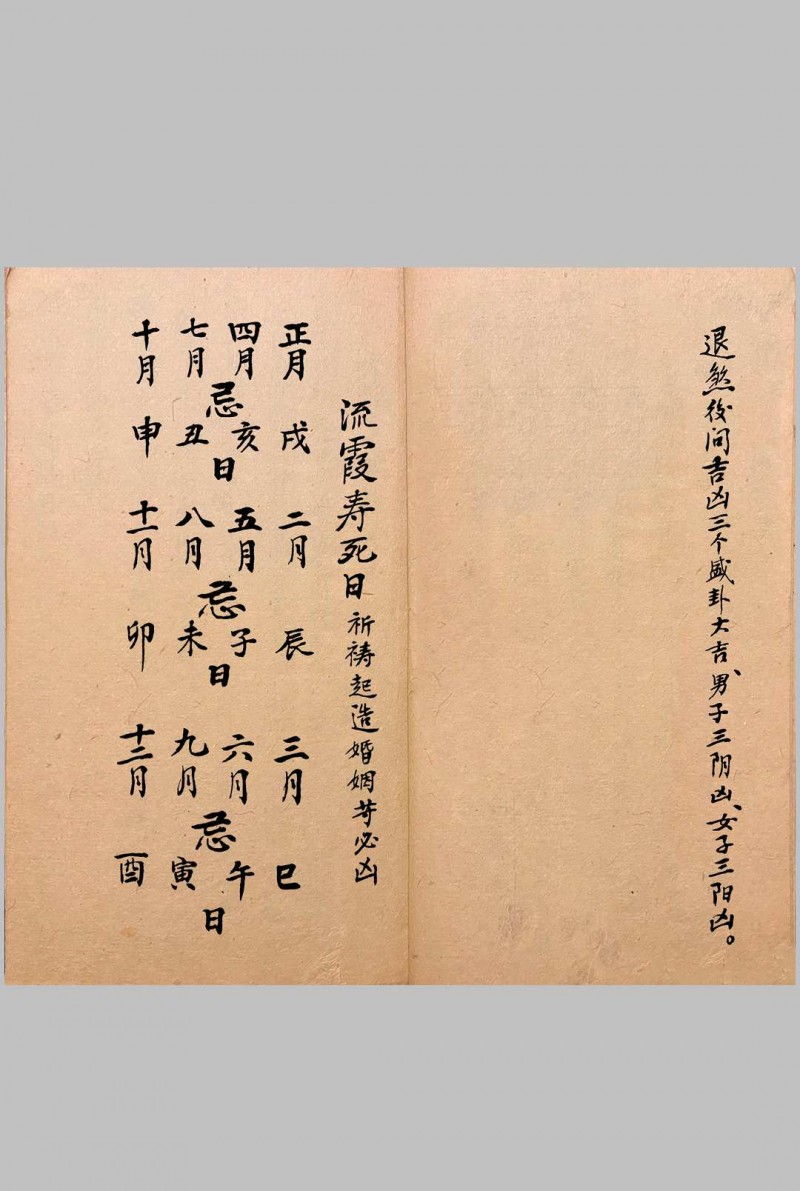 退煞後问吉凶三个盛卦大吉、男子三阴凶、女子三阳凶。
流霞寿死日 祈祷起造婚姻等必凶
正月 四月 七月 十月
忌
戌 亥 丑 申
日
二月 五月 八月 十一月
忌
辰 子 未 卯
日
三月 六月 九月 十二月
忌
巳 午 寅 酉
日